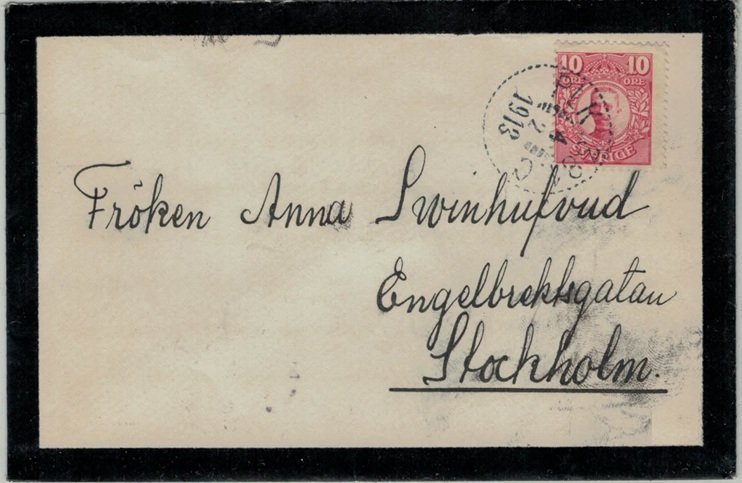 10 10
ÖRE
SVERIGE
4 2
1913
Fröken Anna Swinhufvud
Engelbrektsgatan
Stockholm.